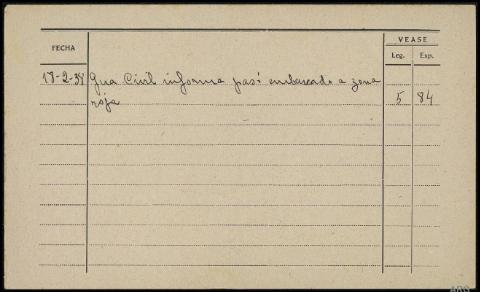 VEASE
FECHA Leg. Exp.
18-2-38 Gua Civil informa pasó embarcado a zona
roja 5 84